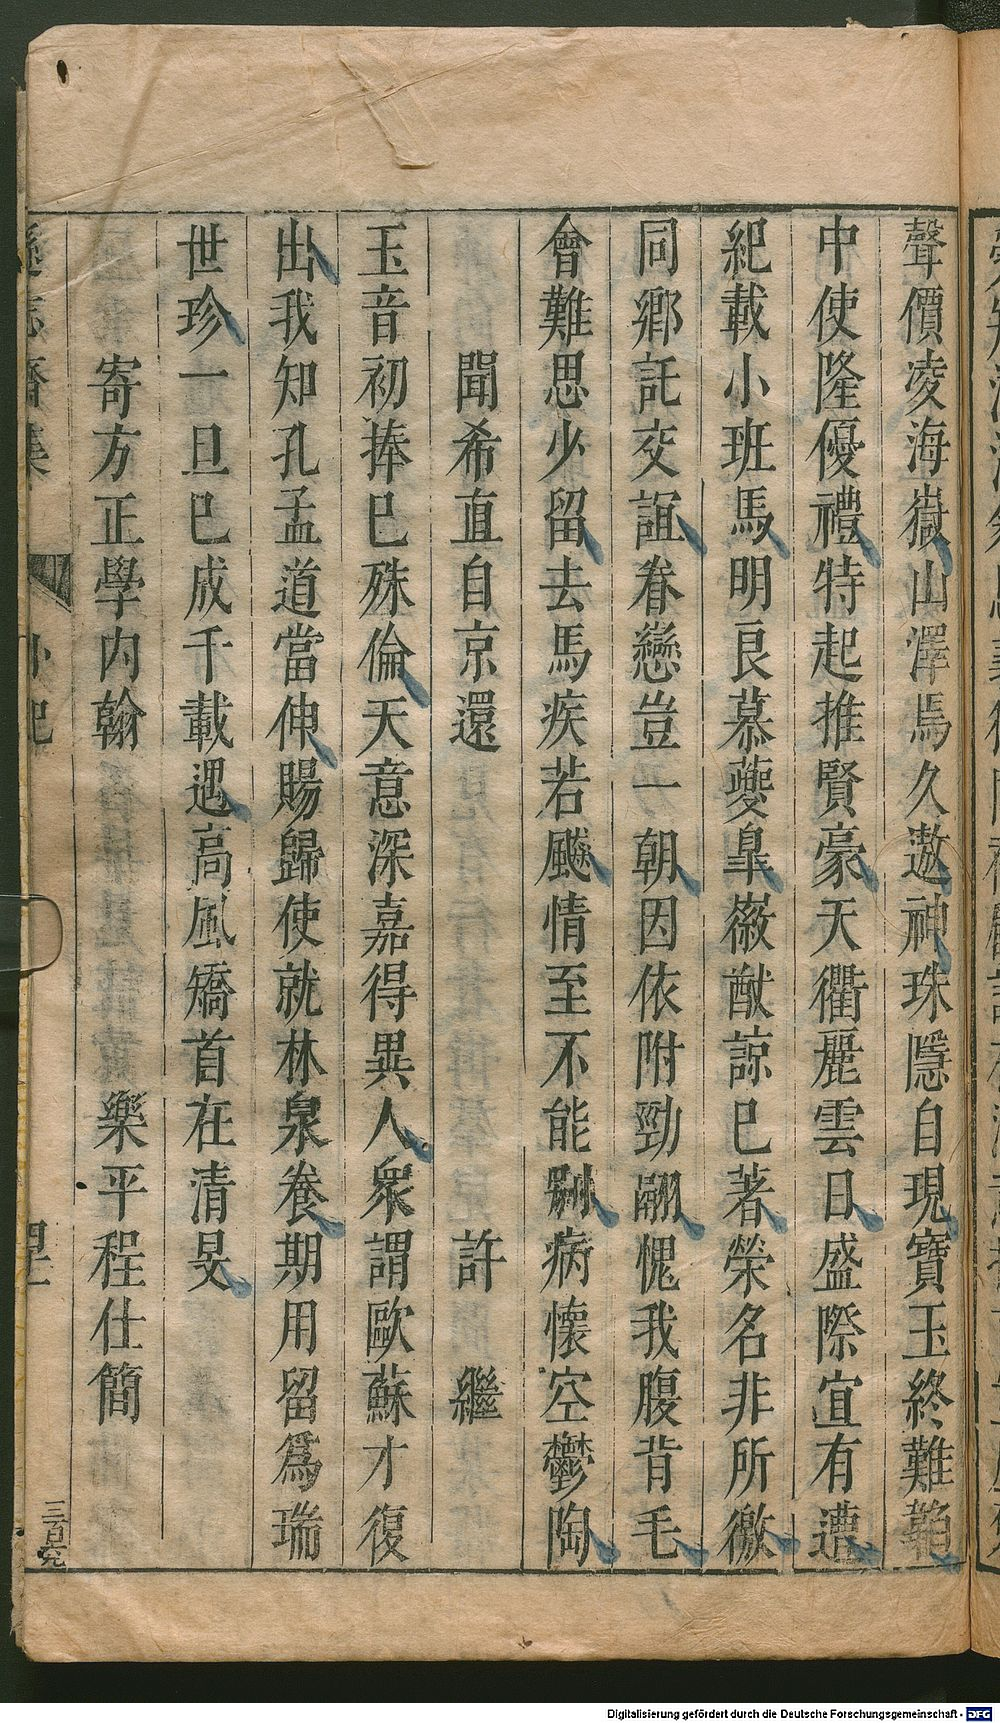 聲價凌海嶽山澤焉久遨神珠隱自現寶玉終難韜
中使隆優禮特起推賢豪天衢麗雲日盛際宜有遭
紀載小班馬明良慕夔臯嶶猷諒已著榮名非所徼
同鄉託交誼眷戀豈一朝因依附勁翮愧我腹背毛
會難思少留去馬疾若飈情至不能別病懷空鬱陶
聞希直自京還 許 繼
玉音初捧巳殊倫天意深嘉得異人衆謂歐蘇才復
出我知孔孟道當伸賜歸使就林泉養期用留爲瑞
世珍一旦巳成千載遇高風矯首在清旻
寄方正學內翰 樂平程仕簡
遜志齋集 外紀
三百
Digitalisierung gefördert durch die Deutsche Forschungsgemeinschaft - DFG